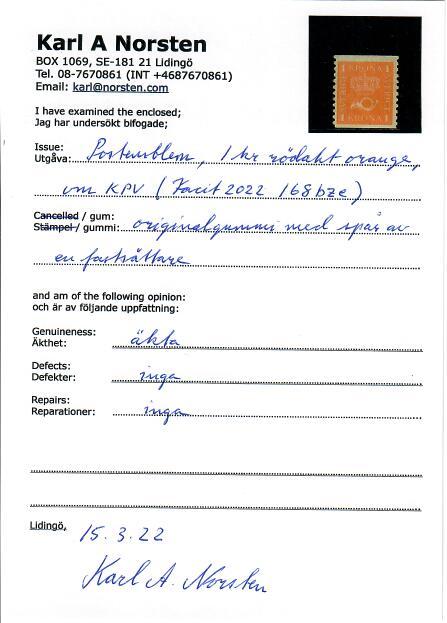 Karl A Norsten
BOX 1069, SE-181 21 Lidingö
Tel. 08-7670861 (INT +4687670861)
Email: karl@norsten.com
I have examined the enclosed;
Jag har undersökt bifogade;
Issue:
Utgåva: Postemblem, 1 kr rödakt orange,
vm KPV (Facit 2022 168bze)
Cancelled / gum:
Stämpel / gummi: originalgummi med spår av
en fastsättare
and am of the following opinion:
och är av följande uppfattning:
Genuineness:
Äkthet: äkta
Defects:
Defekter: inga
Repairs:
Reparationer: inga
Lidingö, 15.3.22
Karl A. Norsten
1 KRONA 1
SVERIGE
1 KRONA 1